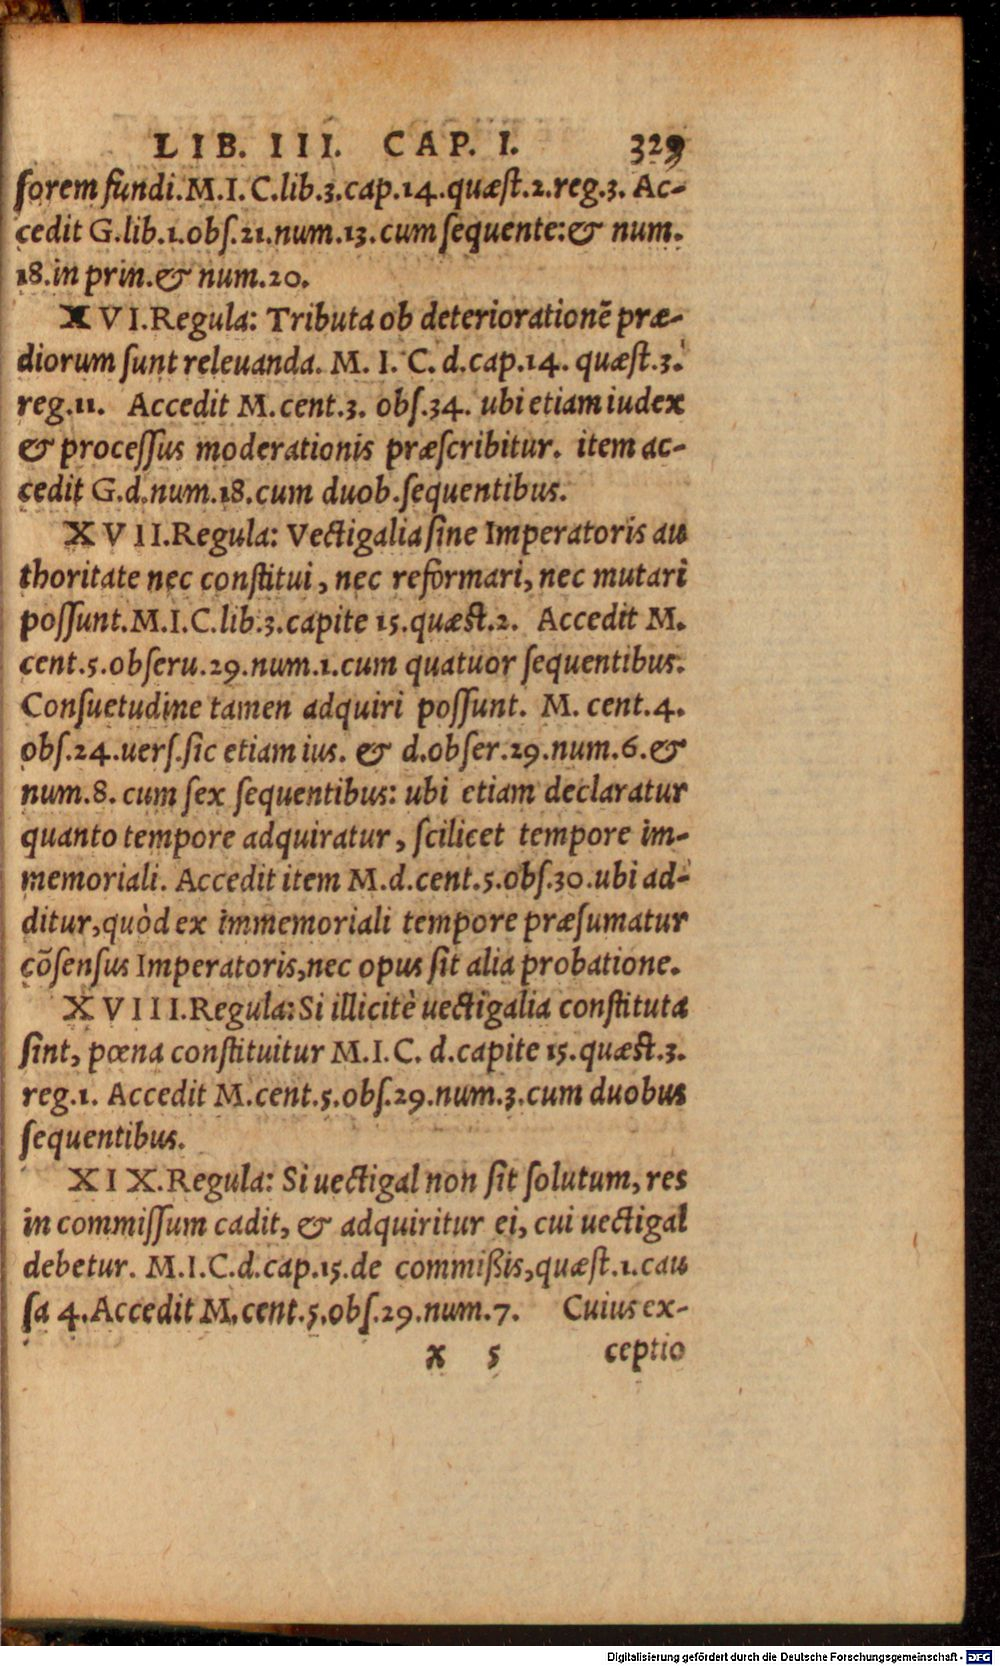 LIB. III. CAP. I. 329
sorem fundi. M. I. C. lib. 3. cap. 14. quæst. 2. reg. 3. Ac-
cedit G. lib. 1. obs. 21. num. 13. cum sequente: & num.
18. in prin. & num. 20.
XVI. Regula: Tributa ob deteriorationē præ-
diorum sunt releuanda. M. I. C. d. cap. 14. quæst. 3.
reg. 11. Accedit M. cent. 3. obs. 34. ubi etiam iudex
& processus moderationis præscribitur. item ac-
cedit G. d. num. 18. cum duob. sequentibus.
XVII. Regula: Vectigalia sine Imperatoris au
thoritate nec constitui, nec reformari, nec mutari
possunt. M. I. C. lib. 3. capite 15. quæst. 2. Accedit M.
cent. 5. obseru. 29. num. 1. cum quatuor sequentibus.
Consuetudine tamen adquiri possunt. M. cent. 4.
obs. 24. uers. sic etiam ius. & d. obser. 29. num. 6. &
num. 8. cum sex sequentibus: ubi etiam declaratur
quanto tempore adquiratur, scilicet tempore im-
memoriali. Accedit item M. d. cent. 5. obs. 30. ubi ad-
ditur, quòd ex immemoriali tempore præsumatur
cōsensus Imperatoris, nec opus sit alia probatione.
XVIII. Regula: Si illicitè uectigalia constituta
sint, pœna constituitur M. I. C. d. capite 15. quæst. 3.
reg. 1. Accedit M. cent. 5. obs. 29. num. 3. cum duobus
sequentibus.
XIX. Regula: Si uectigal non sit solutum, res
in commissum cadit, & adquiritur ei, cui uectigal
debetur. M. I. C. d. cap. 15. de commißis, quæst. 1. cau
sa 4. Accedit M. cent. 5. obs. 29. num. 7. Cuius ex-
x 5 ceptio
Digitalisierung gefördert durch die Deutsche Forschungsgemeinschaft - DFG